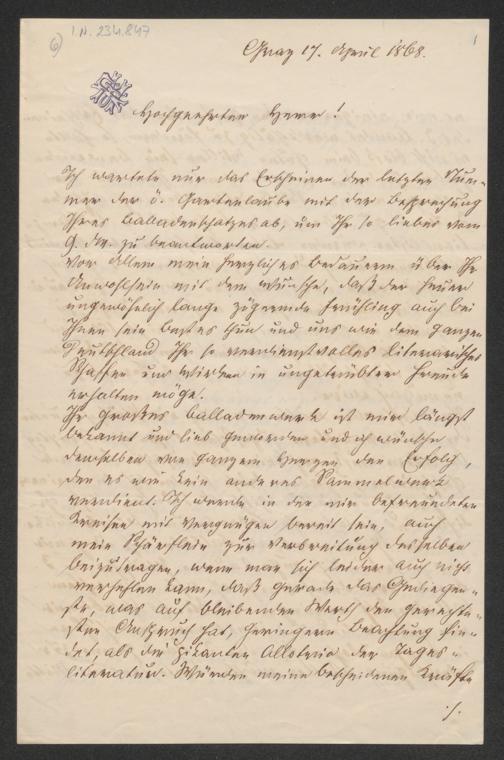 6) I.N. 234.847
1
Graz 17. April 1868.
Hochgeehrter Herr!
Ich wartete nur das Erscheinen der letzten Num-
mer der ö. Gartenlaube mit der Besprechung
Ihres Balladenschatzes ab, um Ihr so liebes vom
9. ds. zu beantworten.
Vor Allem mein herzliches Bedauern über Ihr
Unwohlsein mit dem Wunsche, daß der heuer
ungewöhnlich lange zögernde Frühling auch bei
Ihnen sein bestes thue und uns wie dem ganzen
Deutschland Ihr so verdienstvolles literarisches
Schaffen und Wirken in ungetrübter Freude
erhalten möge.
Ihr großes Balladenwerk ist mir längst
bekannt und lieb geworden und ich wünsche
demselben von ganzem Herzen den Erfolg,
den es wie kein anderes Sammelwerk
verdient. Ich werde in den mir befreundeten
Kreisen mit Vergnügen bereit sein, auch
mein Schärflein zur Verbreitung desselben
beizutragen, wenn man sich leider auch nicht
verhehlen kann, daß gerade das Gediegen-
ste, was auf bleibenden Werth den gerechte-
sten Anspruch hat, geringere Beachtung fin-
det, als die pikanten Allotria der Tages-
literatur. Würden meine bescheidenen Kräfte
./.